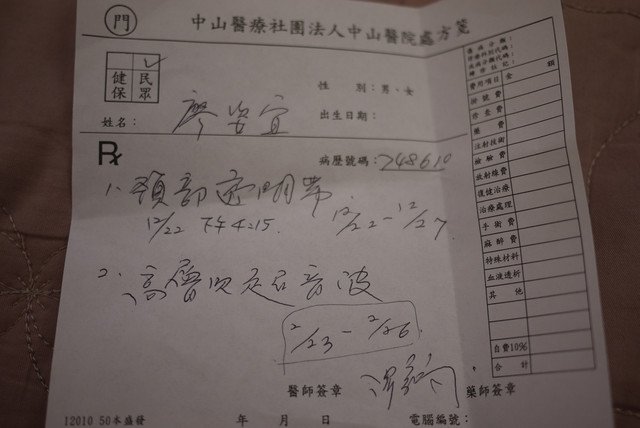 門
中山醫療社團法人中山醫院處方箋
健保
民眾
姓名：廖姿宜
性 別：男、女
出生日期：
Rx
病歷號碼：748610
1、頸部透明帶
12/22 下午4:15. 12/22-12/27.
2、高層次超音波
2/23-2/26.
醫師簽章
藥師簽章
12010 50本盛發
年 月 日
電腦編號：
費用項目
金 額
掛號費
診查費
藥 費
注射技術
檢驗費
放射線費
復健治療
治療處理
手術費
麻醉費
特殊材料
血液透析
其 他
自費10%
合 計